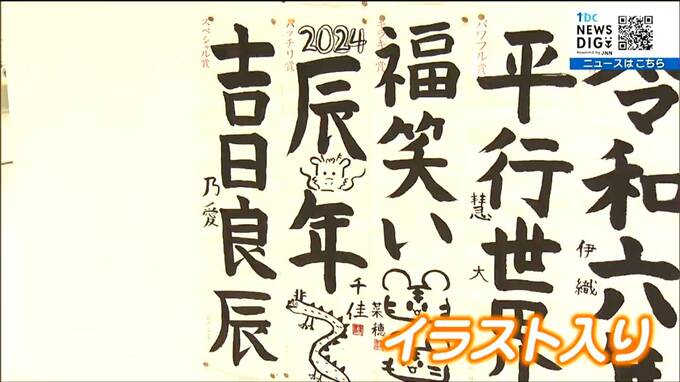 tbc
NEWS
DIG
Powered by JNN
ニュースはこちら
令和六
伊織
パワフル賞
平行世界
慧大
福笑い
菜穂
バッチリ賞
2024
辰年
千佳
スペシャル賞
吉日良辰
乃愛
イラスト入り